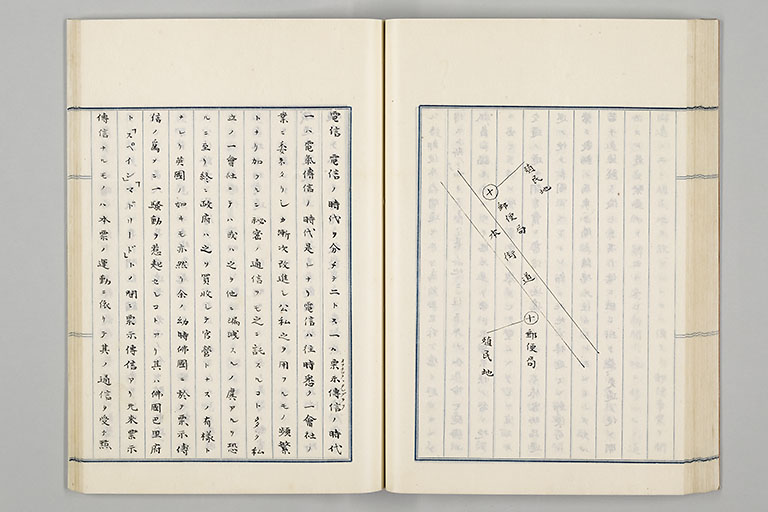 殖民地
郵便局
本街道
郵便局
殖民地
電信 電信ノ時代ヲ分メテニトス一ハ票示傳信ノ時代
一ハ電氣傳信ノ時代是レナリ電信ハ往時悉ク一會社ノ
業ニ委子タリシカ漸次改進シ公私之ヲ用フルモノ頻繁
トナリ加フルニ秘密ノ通信ヲモ之ニ託スルコト多ク私
立ノ一會社ニテハ或ハ之ヲ他ニ漏洩スルノ虞アルヲ恐
ルニ至リ終ニ政府ハ之ヲ買收シテ官營トナスノ有様ト
ナレリ英國ノ如キモ亦然リ余ノ幼時佛國ニ於テ票示傳
信ノ爲メニ一騒動ヲ惹起セシコトアリ其ハ佛國巴里府
ト「スペイン」「マドリード」トノ間ニ票示傳信アリ元来票示
傳信ナルモノハ木票ノ運動ニ依リテ其ノ通信ヲ受ケ點